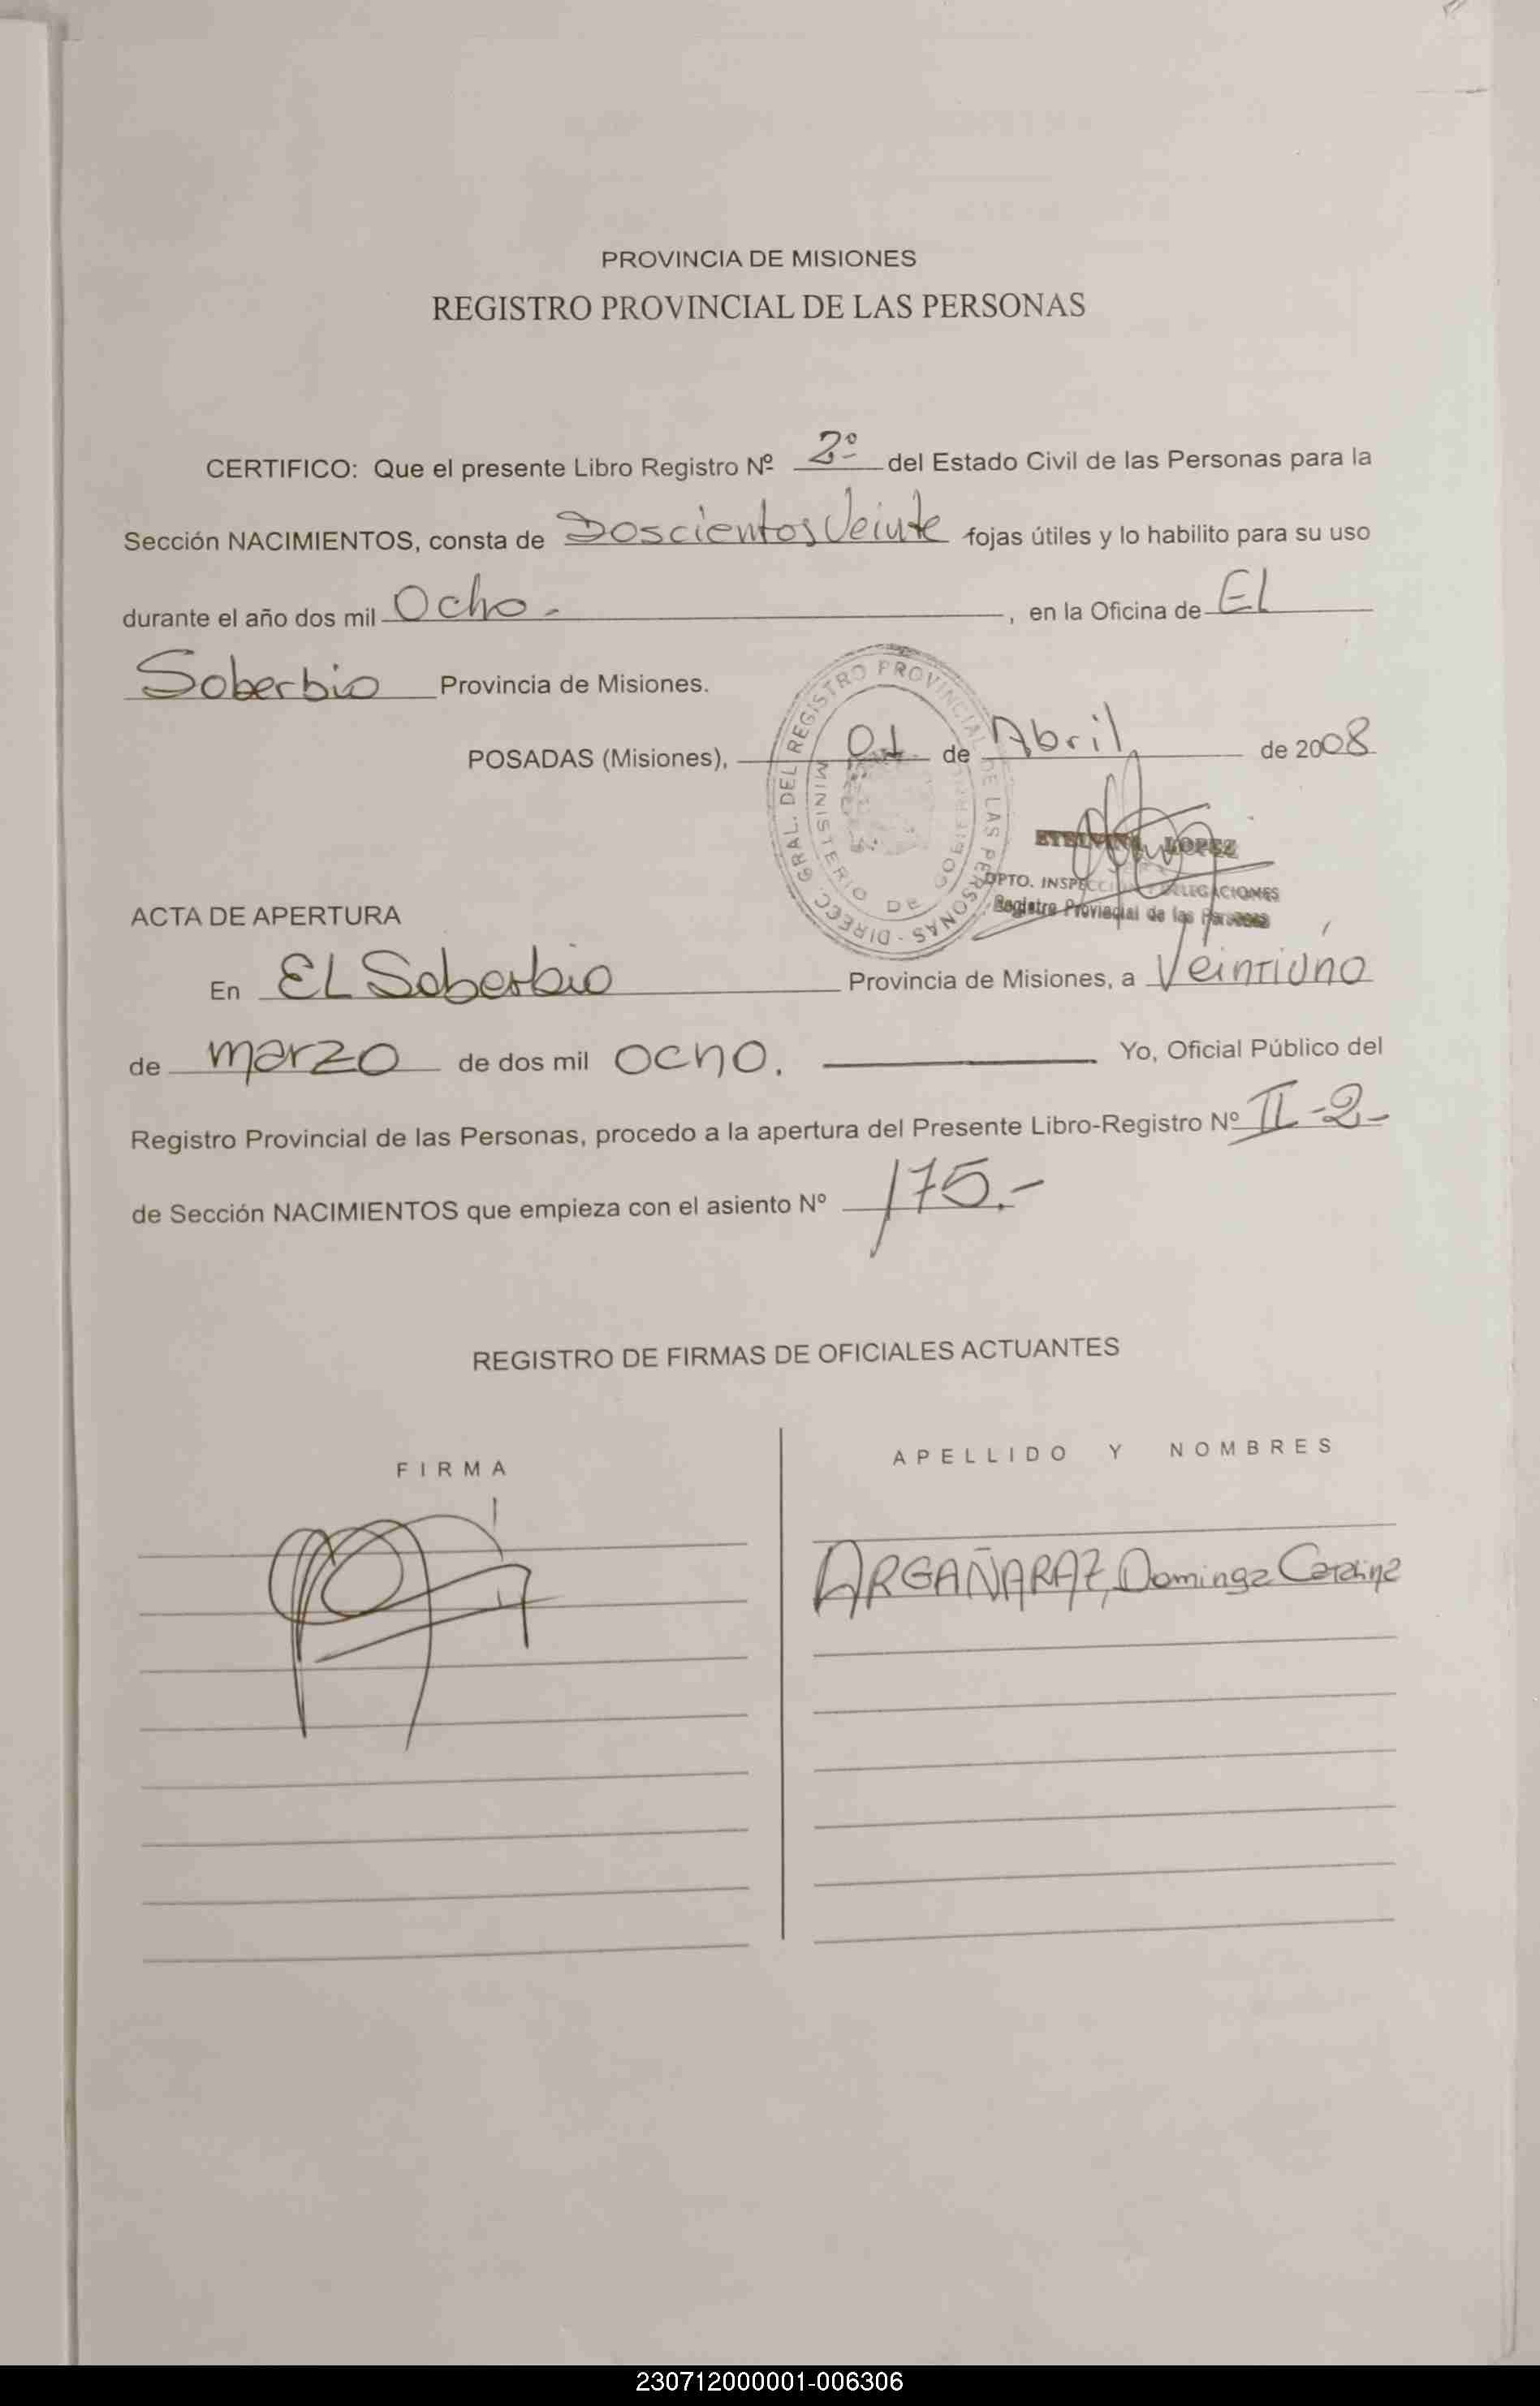 PROVINCIA DE MISIONES
REGISTRO PROVINCIAL DE LAS PERSONAS
CERTIFICO: Que el presente Libro Registro Nº 2º del Estado Civil de las Personas para la
Sección NACIMIENTOS, consta de Doscientos Veinte fojas útiles y lo habilito para su uso
durante el año dos mil Ocho.-, en la Oficina de El
Soberbio Provincia de Misiones.
POSADAS (Misiones), 01 de Abril de 2008
DIRECC. GRAL. DEL REGISTRO PROVINCIAL DE LAS PERSONAS -
MINISTERIO DE GOBIERNO
LOPEZ
DPTO. INSPECCION Y DELEGACIONES
Registro Provincial de las Personas
ACTA DE APERTURA
En EL Soberbio Provincia de Misiones, a Veintiúno
de marzo de dos mil ocho. Yo, Oficial Público del
Registro Provincial de las Personas, procedo a la apertura del Presente Libro-Registro Nº II-2-
de Sección NACIMIENTOS que empieza con el asiento Nº 175.-
REGISTRO DE FIRMAS DE OFICIALES ACTUANTES
FIRMA
APELLIDO Y NOMBRES
ARGAÑARAZ, Dominga Catalina
230712000001-006306